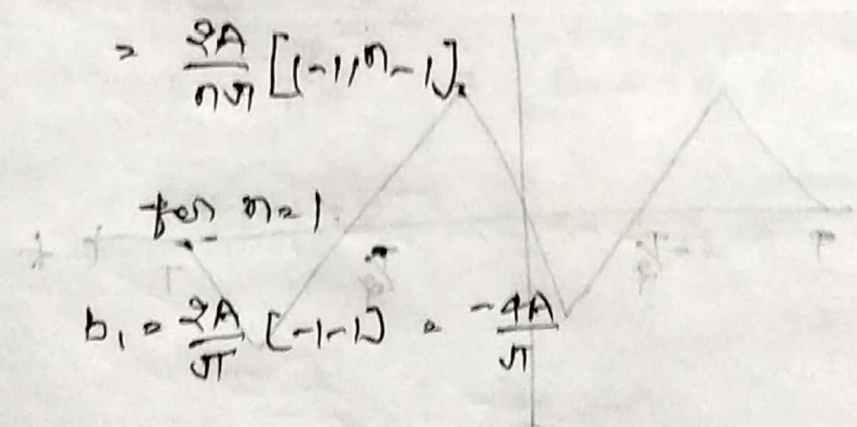 = 2A/nπ [(-1)^n - 1].
for n=1.
b₁ = 2A/π [-1-1] = -4A/π